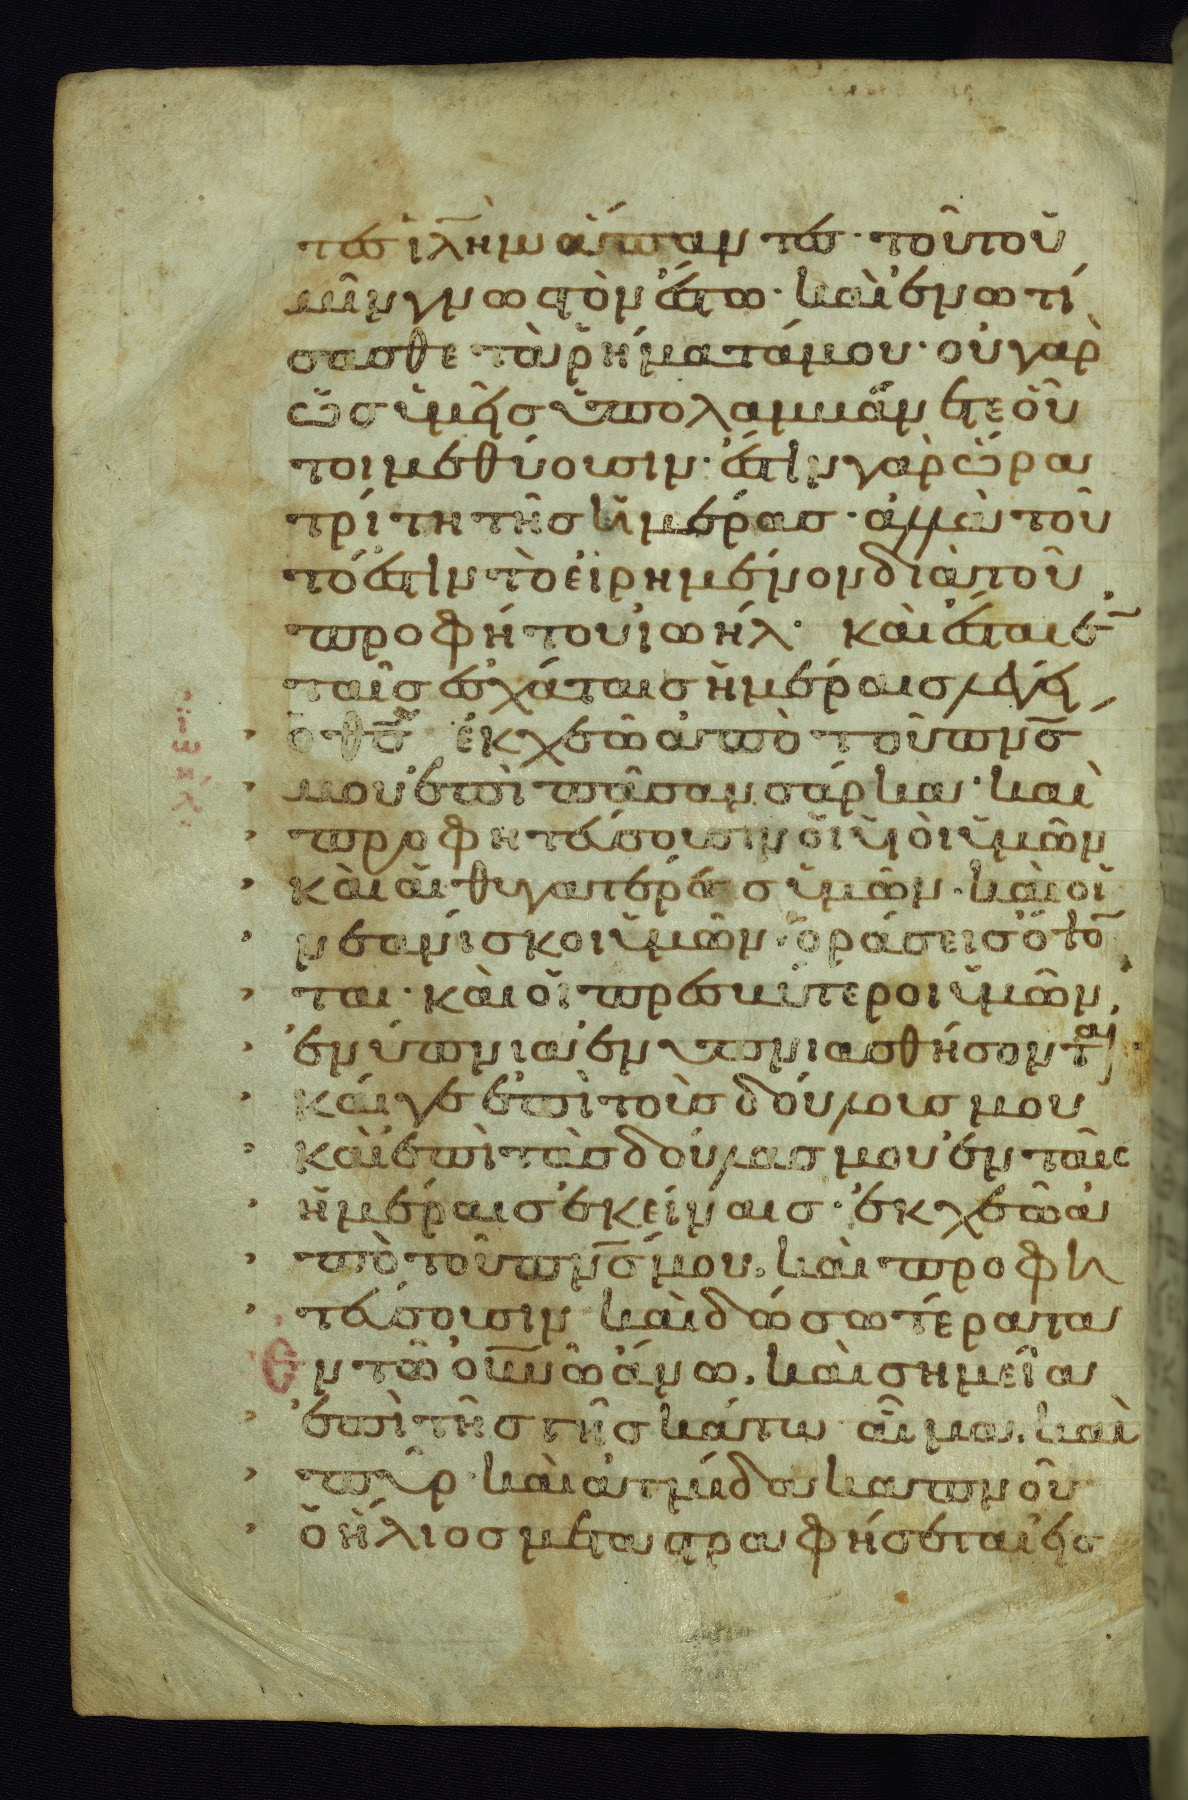 τες ἱλ̅ημ ἅπαντες· τοῦτο ὑ
μῖν γνωστὸν ἔστω· καὶ ἐνωτί
σασθε τὰ ῥήματά μου· οὐ γὰρ
ὡς ὑμεῖς ὑπολαμβάνετε οὗ
τοι μεθύουσιν· ἔστιν γὰρ ὥρα
τρίτη τῆς ἡμέρας· ἀλλὰ τοῦ
τό ἐστιν τὸ εἰρημένον διὰ τοῦ
προφήτου ἰωήλ· καὶ ἔσται ἐ̅
ταῖς ἐσχάταις ἡμέραις λέγει
ὁ θς̅ ἐκχεῶ ἀπὸ τοῦ πνς̅
μου ἐπὶ πᾶσαν σάρκα· καὶ
προφητεύσουσιν οἱ υἱοὶ ὑμῶν
καὶ αἱ θυγατέρες ὑμῶν· καὶ οἱ
νεανίσκοι ὑμῶν ὁράσεις ὄψο̅
ται· καὶ οἱ πρεσβύτεροι ὑμῶν,
ἐνύπνια ἐνυπνιασθήσονται·
καί γε ἐπὶ τοὺς δούλους μου
καὶ ἐπὶ τὰς δούλας μου ἐν ταῖς
ἡμέραις ἐκείναις· ἐκχεῶ ἀ
πὸ τοῦ πνς̅ μου, καὶ προφη
τεύσουσιν καὶ δώσω τέρατα
Ἐν τῶ οὐν̅ῶ ἄνω, καὶ σημεῖα
ἐπὶ τῆς γῆς κάτω αἷμα, καὶ
πῦρ καὶ ἀτμίδα καπνοῦ
ὁ ἥλιος μεταστραφήσεται εἰς
ϊωηλ